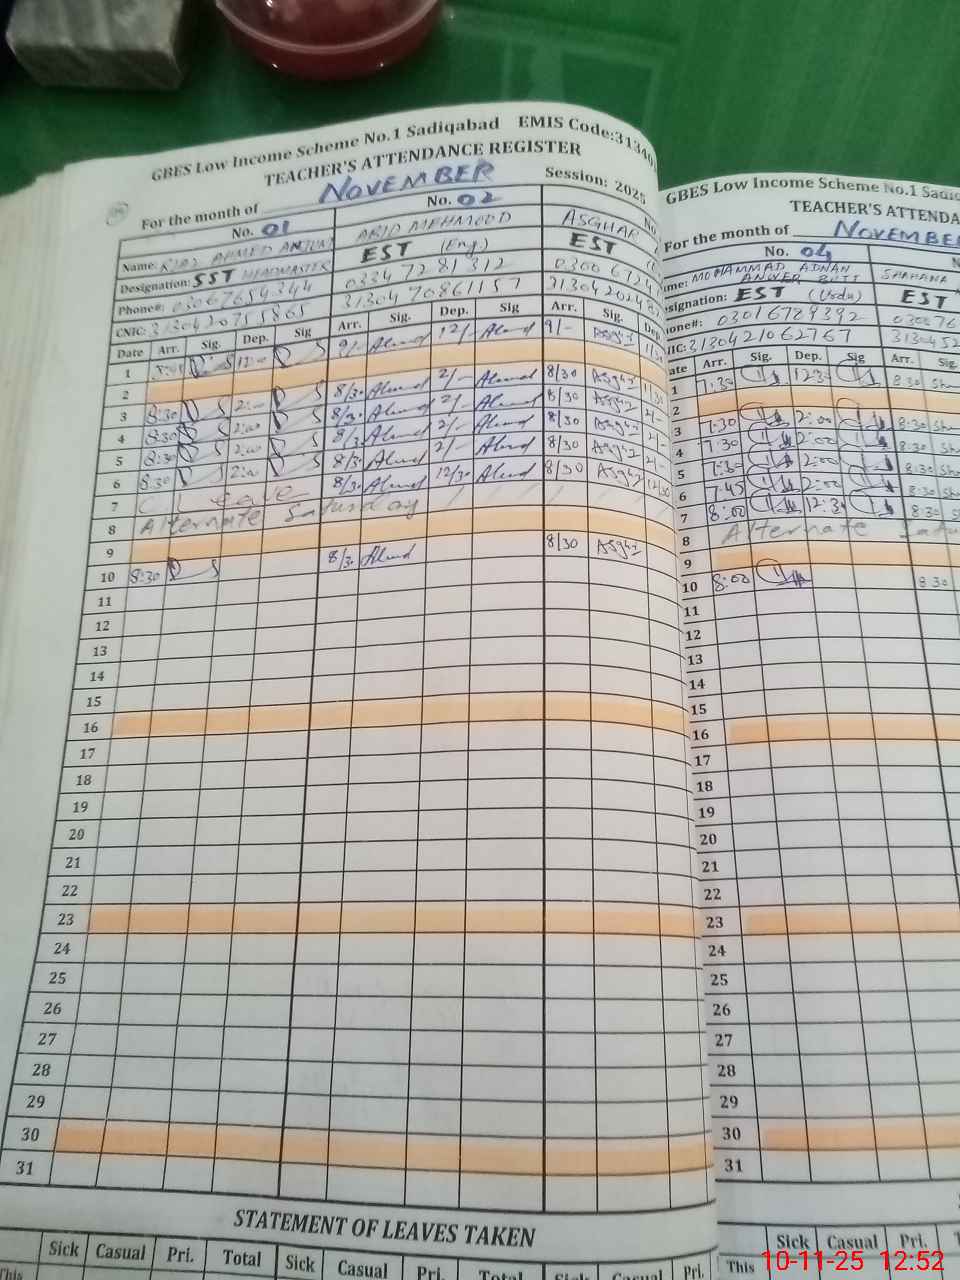 GBES Low Income Scheme No.1 Sadiqabad EMIS Code:31340
TEACHER'S ATTENDANCE REGISTER
For the month of NOVEMBER Session: 2025
No. 01 No. 02 No
Name: RIAZ AHMED ANJUM ARID MEHMOOD ASGHAR
Designation: SST HEADMASTER EST (Eng) EST
Phone#: 03067654344 0334 7281312 0300 6724
CNIC: 3130420755865 31304 70861157 313042024
Date Arr. Sig. Dep. Sig Arr. Sig. Dep. Sig. Arr. Sig. Dep
1 12:00 9/- Ahmd 12/- Ahmd 9/- Asghar
2
3 8:30 2:00 8/30 Ahmd 2/- Ahmd 8/30 Asghar
4 8:30 2:00 8/30 Ahmd 2/- Ahmd 8/30 Asghar 2/-
5 8:30 2:00 8/30 Ahmd 2/- Ahmd 8/30 Asghar 2/-
6 8:30 2:00 8/30 Ahmd 2/- Ahmd 8/30 Asghar 2/-
7 C Leave 8/30 Ahmd 12/30 Ahmd 8/30 Asghar 12/30
8 Alternate Saturday
9
10 8:30 8/30 Ahmd 8/30 Asghar
11
12
13
14
15
16
17
18
19
20
21
22
23
24
25
26
27
28
29
30
31
STATEMENT OF LEAVES TAKEN
Sick Casual Pri. Total Sick Casual Pri. Total Sick Casual Pri.
This
GBES Low Income Scheme No.1 Sadiq
TEACHER'S ATTENDA
For the month of NOVEMBER
No. 04 N
ame: MOHAMMAD ADNAN SHAHANA
ANWER BUTT
esignation: EST (Urdu) EST
one#: 03016789392 030876
IC: 3130421062767 3130452
ate Arr. Sig. Dep. Sig Arr. Sig
1 7:30 12:30 8:30 Sha
2
3 7:30 2:00 8:30 Sha
4 7:30 2:00 8:30 Sha
5 7:30 2:00 8:30 Sha
6 7:45 2:00 8:30 Sha
7 8:00 12:30 8:30 Sh
8 Alternate Satu
9
10 8:00 8:30
11
12
13
14
15
16
17
18
19
20
21
22
23
24
25
26
27
28
29
30
31
Sick Casual Pri. T
This
10-11-25 12:52